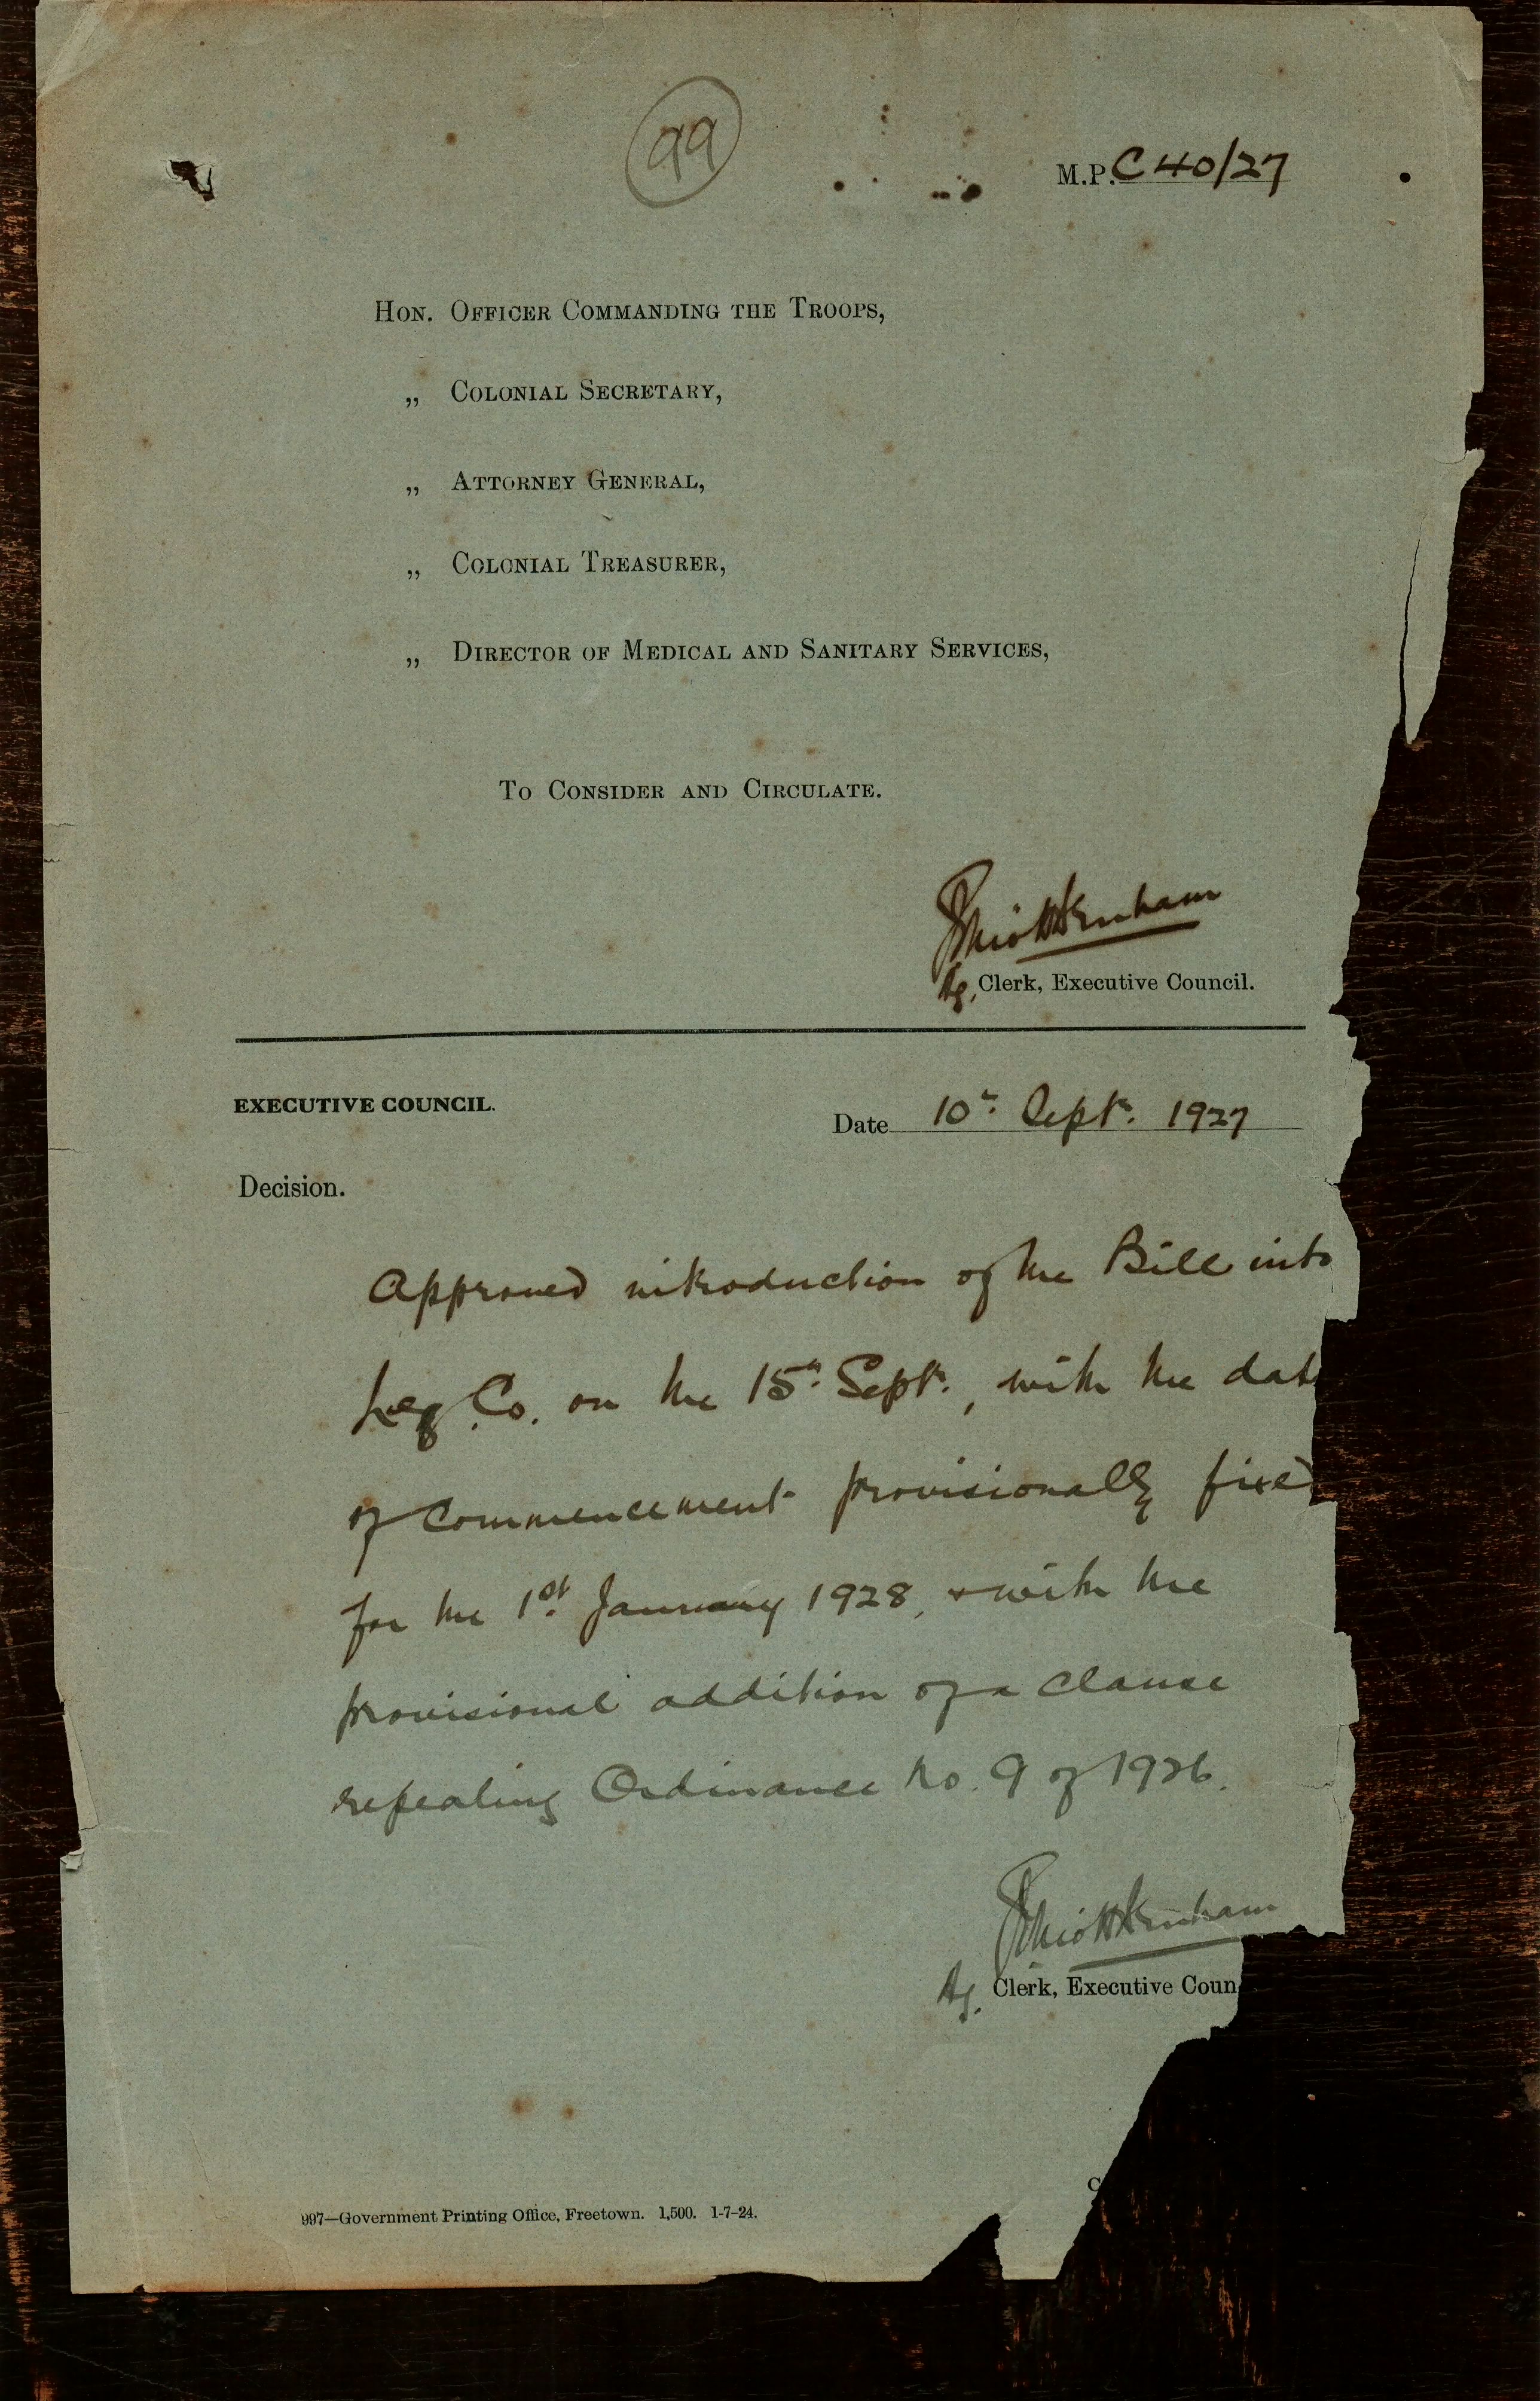 99
M.P. C 40/27
HON. OFFICER COMMANDING THE TROOPS,
„ COLONIAL SECRETARY,
„ ATTORNEY GENERAL,
„ COLONIAL TREASURER,
„ DIRECTOR OF MEDICAL AND SANITARY SERVICES,
TO CONSIDER AND CIRCULATE.
Ag. Clerk, Executive Council.
EXECUTIVE COUNCIL.
Date 10th Sept. 1927
Decision.
Approved introduction of the Bill into
Leg. Co. on the 15th Sept., with the dat
of commencement provisionally fixed
for the 1st January 1928, & with the
provisional addition of a clause
repealing Ordinance No. 9 of 1926.
Ag. Clerk, Executive Coun
C
997—Government Printing Office, Freetown. 1,500. 1-7-24.